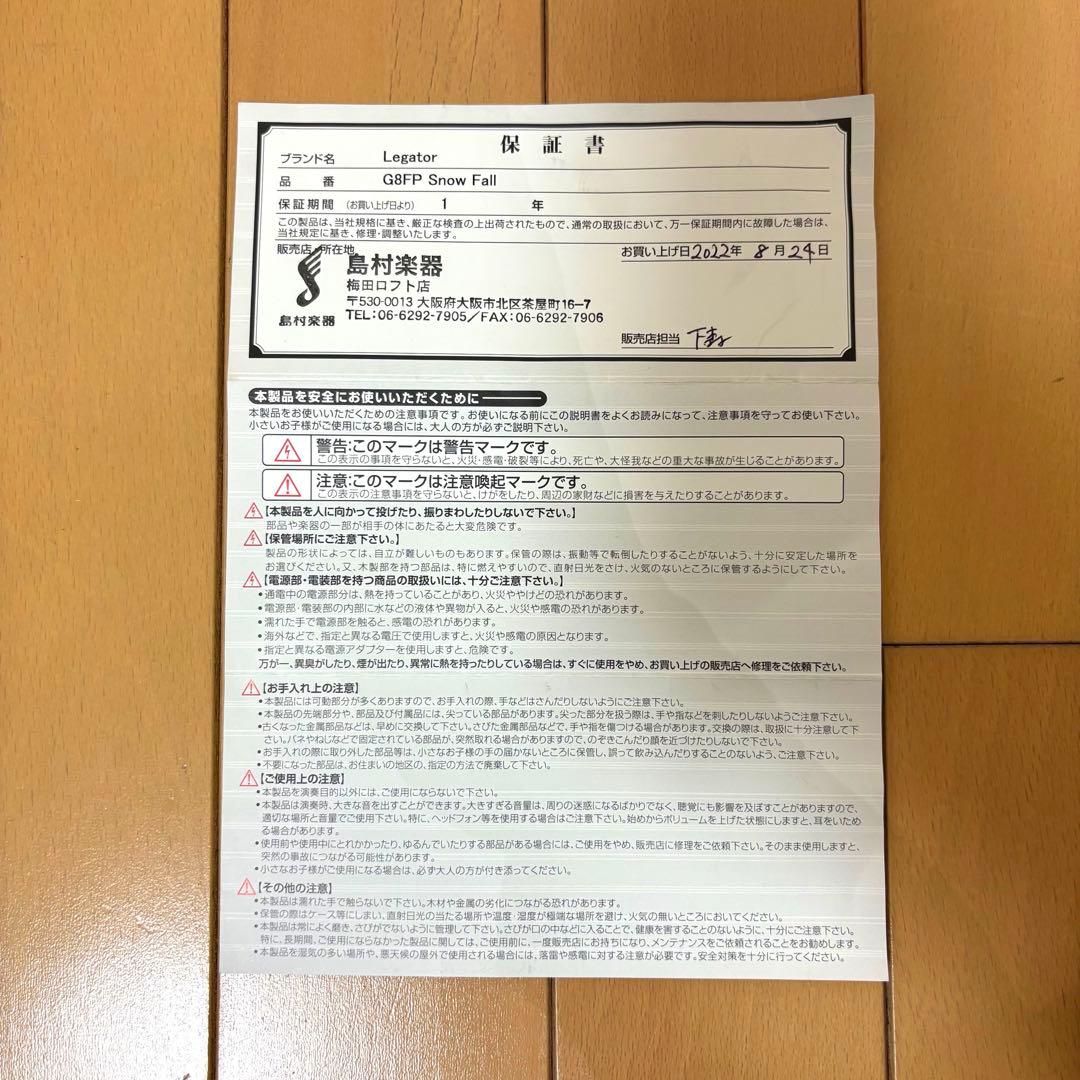 保証書
ブランド名 Legator
品番 G8FP Snow Fall
保証期間 (お買い上げ日より) 1 年
この製品は、当社規格に基き、厳正な検査の上出荷されたもので、通常の取扱において、万一保証期間内に故障した場合は、
当社規定に基き、修理・調整いたします。
販売店・所在地
お買い上げ日2022年 8月24日
島村楽器
梅田ロフト店
〒530-0013 大阪府大阪市北区茶屋町16-7
島村楽器
TEL:06-6292-7905/FAX:06-6292-7906
販売店担当
本製品を安全にお使いいただくために
本製品をお使いいただくための注意事項です。お使いになる前にこの説明書をよくお読みになって、注意事項を守ってお使い下さい。
小さいお子様がご使用になる場合には、大人の方が必ずご説明下さい。
警告:このマークは警告マークです。
この表示の事項を守らないと、火災・感電・破裂等により、死亡や、大怪我などの重大な事故が生じることがあります。
注意:このマークは注意喚起マークです。
この表示の注意事項を守らないと、けがをしたり、周辺の家財などに損害を与えたりすることがあります。
【本製品を人に向かって投げたり、振りまわしたりしないで下さい。】
部品や楽器の一部が相手の体にあたると大変危険です。
【保管場所にご注意下さい。】
製品の形状によっては、自立が難しいものもあります。保管の際は、振動等で転倒したりすることがないよう、十分に安定した場所を
お選びください。又、木製部を持つ部品は、特に燃えやすいので、直射日光をさけ、火気のないところに保管するようにして下さい。
【電源部・電装部を持つ商品の取扱いには、十分ご注意下さい。】
•通電中の電源部分は、熱を持っていることがあり、火災ややけどの恐れがあります。
•電源部・電装部の内部に水などの液体や異物が入ると、火災や感電の恐れがあります。
•濡れた手で電源部を触ると、感電の恐れがあります。
•海外などで、指定と異なる電圧で使用しますと、火災や感電の原因となります。
•指定と異なる電源アダプターを使用しますと、危険です。
万が一、異臭がしたり、煙が出たり、異常に熱を持ったりしている場合は、すぐに使用をやめ、お買い上げの販売店へ修理をご依頼下さい。
【お手入れ上の注意】
•本製品には可動部分が多くありますので、お手入れの際、手などはさんだりしないようにご注意下さい。
•本製品の先端部分や、部品及び付属品には、尖っている部品があります。尖った部分を扱う際は、手や指などを刺したりしないようご注意下さい。
•古くなった金属部品などは、早めに交換して下さい。さびた金属部品などで、手や指を傷つける場合があります。交換の際は、取扱に十分注意して下
さい。バネやねじなどで固定されている部品が、突然取れる場合がありますので、のぞきこんだり顔を近づけたりしないで下さい。
•お手入れの際に取り外した部品等は、小さなお子様の手の届かないところに保管し、誤って飲み込んだりすることのないよう、ご注意下さい。
•不要になった部品は、お住まいの地区の、指定の方法で廃棄して下さい。
【ご使用上の注意】
•本製品を演奏目的以外には、ご使用にならないで下さい。
•本製品は演奏時、大きな音を出すことができます。大きすぎる音量は、周りの迷惑になるばかりでなく、聴覚にも影響を及ぼすことがありますので、
適切な場所と音量でご使用下さい。特に、ヘッドフォン等を使用する場合はご注意下さい。始めからボリュームを上げた状態にしますと、耳をいため
る場合があります。
•使用前や使用中にとれかかったり、ゆるんでいたりする部品がある場合には、ご使用をやめ、販売店に修理をご依頼下さい。そのまま使用しますと、
突然の事故につながる可能性があります。
•小さなお子様がご使用になる場合は、必ず大人の方が付き添ってください。
【その他の注意】
•本製品は濡れた手で触らないで下さい。木材や金属の劣化につながる恐れがあります。
•保管の際はケース等にしまい、直射日光の当たる場所や温度・湿度が極端な場所を避け、火気の無いところにおいてください。
•本製品は常によく磨き、さびがでないように管理して下さい。さびが口の中などに入ることで、健康を害することのないように、十分にご注意下さい。
特に、長期間、ご使用にならなかった製品に関しては、ご使用前に、一度販売店にお持ちになり、メンテナンスをご依頼されることをお勧めします。
•本製品を湿気の多い場所や、悪天候の屋外で使用される場合には、落雷や感電に対する注意が必要です。安全対策を十分に行ってください。